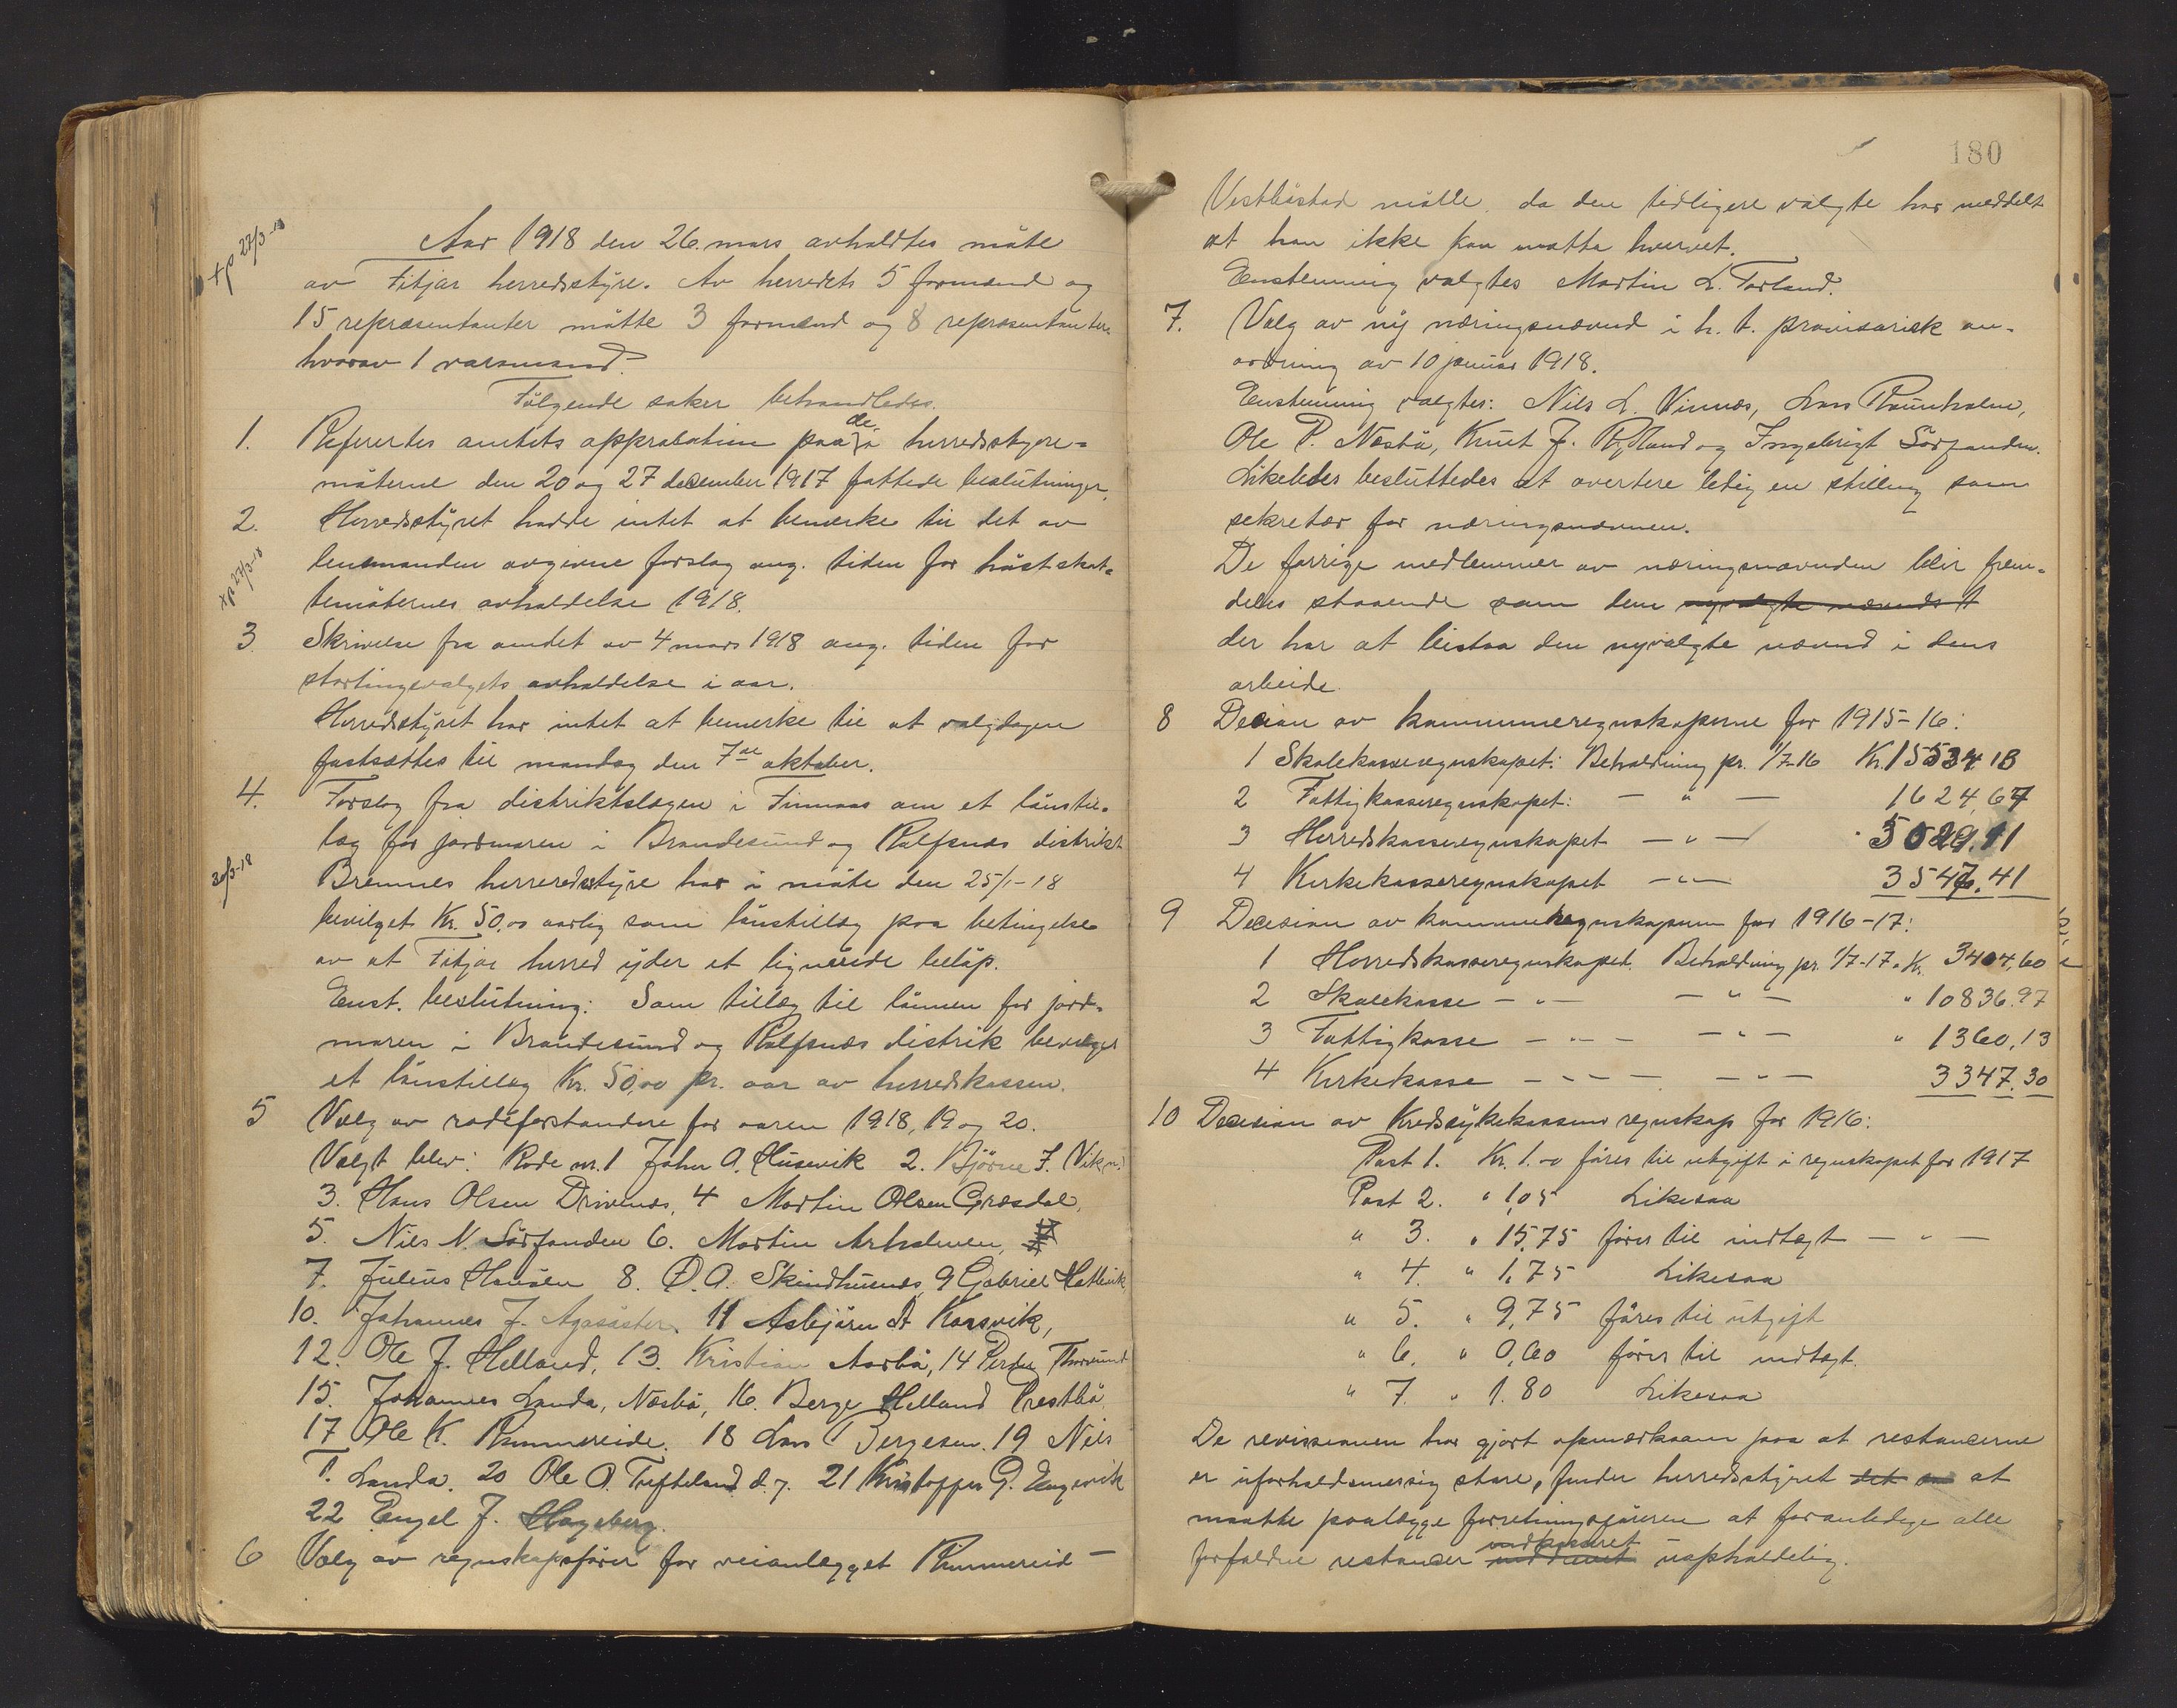 xp 27/3-18
Aar 1918 den 26. mars avholdtes möte
av Fitjar herredsstyre. Av herredets 5 formænd og
15 repræsentanter mötte 3 formænd og 8 repræsentanter
hvorav 1 varamand.
Fölgende saker behandledes.
1. Refererter amtets approbation paa de i herredsstyre-
möterne den 20 og 27 december 1917 fattede beslutninger.
2. Herredsstyret hadde intet at bemerke til det av
xp 27/3-18
lensmanden avgivne forslag ang. tiden for höstskat-
temöternes avholdelse 1918.
3 Skrivelse fra amtet av 4 mars 1918 ang. tiden for
stortingsvalgets avholdelse i aar.
Herredsstyret har intet at bemerke til at valgdagen
fastsættes til mandag den 7de oktober.
4. Forslag fra distriktslægen i Finnaas om et lönstil-
læg for jordmoren i Brandesund og Rolfsnæs distrikt
30/3-18
Bremnes herreredsstyre har i möte den 25/1-18
bevilget Kr. 50,00 aarlig som lönstillæg paa betingelse
av at Fitjar herred yder et lignende belöp.
Enst. beslutning: Som tillæg til lönnen for jord-
moren i Brandesund og Rolfsnæs distrik bevilges
et lönstillæg Kr. 50,00 pr. aar av herredskassen.
5 Valg av rodeforstandere for aaren 1918, 19 og 20.
Valgt blev: Rode nr. 1 Johan A. Husevik 2. Björne J. Vikn.
3. Hans Olsen Drivenes, 4 Martin Olsen Græsdal,
5. Nils N. Sörfonden 6. Martin Arholmen,
7. Julius Hansen 8. O. A. Skindhuenes, 9 Gabriel Hatlevik
10. Johannes J. Agasöster 11 Asbjörn A Korsvik,
12. Ole J. Helland, 13. Kristian Aarbö, 14 Peder Thorsund
15. Johannes Landa, Næsbö, 16. Berge Helland Prestbö
17 Ole K. Rimmereide. 18 Lars Bergesen. 19 Nils
T. Landa. 20 Ole O. Tufteland d.y. 21 Kristoffer G. Engevik
22 Engel J. Hageberg.
6 Valg av regnskapsförer for veianlægget Rimmereid -
180
Vestböstad mölle, da den tidligere valgte har meddelt
at han ikke kan motta hvervet.
Enstemmig valgtes Martin L. Torland.
7. Valg av ny næringsnævnd i h. t. provisorisk an-
ordning av 10 januar 1918.
Enstemmig valgtes: Nils L. Vinnes, Lars Raunholm,
Ole P. Næsbö, Knut J. Rydland og Ingebrigt Sörfonden.
Likeledes besluttedes at avertere ledig en stilling som
sekretær for næringsnævnen.
De forrige medlemmer av næringsnævnden blir frem-
deles staaende som dem nyvalgte nævnds
der har at bistaa den nyvalgte nævnd i dens
arbeide.
8 Decision av kommuneregnskaperne for 1915-16:
1 Skolekasseregnskapet: Beholdning pr. 1/7-16 Kr. 15534,18
2 Fattigkasseregnskapet: — " — 1624,67
3 Herredskasseregnskapet — " — 5029.11
4 Kirkekasseregnskapet — " — 3547,41
9 Decision av kommuneregnskaperne for 1916-17:
1 Herredskasseregnskapet. Beholdning pr. 1/7-17. Kr. 3404,60
2 Skolekasse — " — — " — " 10836.97
3 Fattigkasse — " — — " — " 1360,13
4 Kirkekasse — " — — " — 3347.30
10 Decision av Kredssykekassens regnskap for 1916:
Post 1. Kr. 1.00 föres til utgift i regnskapet for 1917
Post 2. " 1,05 Likesaa
" 3. " 15,75 föres til indtægt — " —
" 4. " 1,75 Likesaa
" 5. " 9,75 föres til utgift
" 6. " 0,60 föres til indtægt.
" 7. " 1.80 Likesaa
De revisionen har gjort opmerksom paa at restancerne
er uforholdsmessig store, finder herredsstyret det at
maatte paalægge forretningsföreren at foranledige alle
forfaldne restancer inddrevet indkasseret uopholdelig.